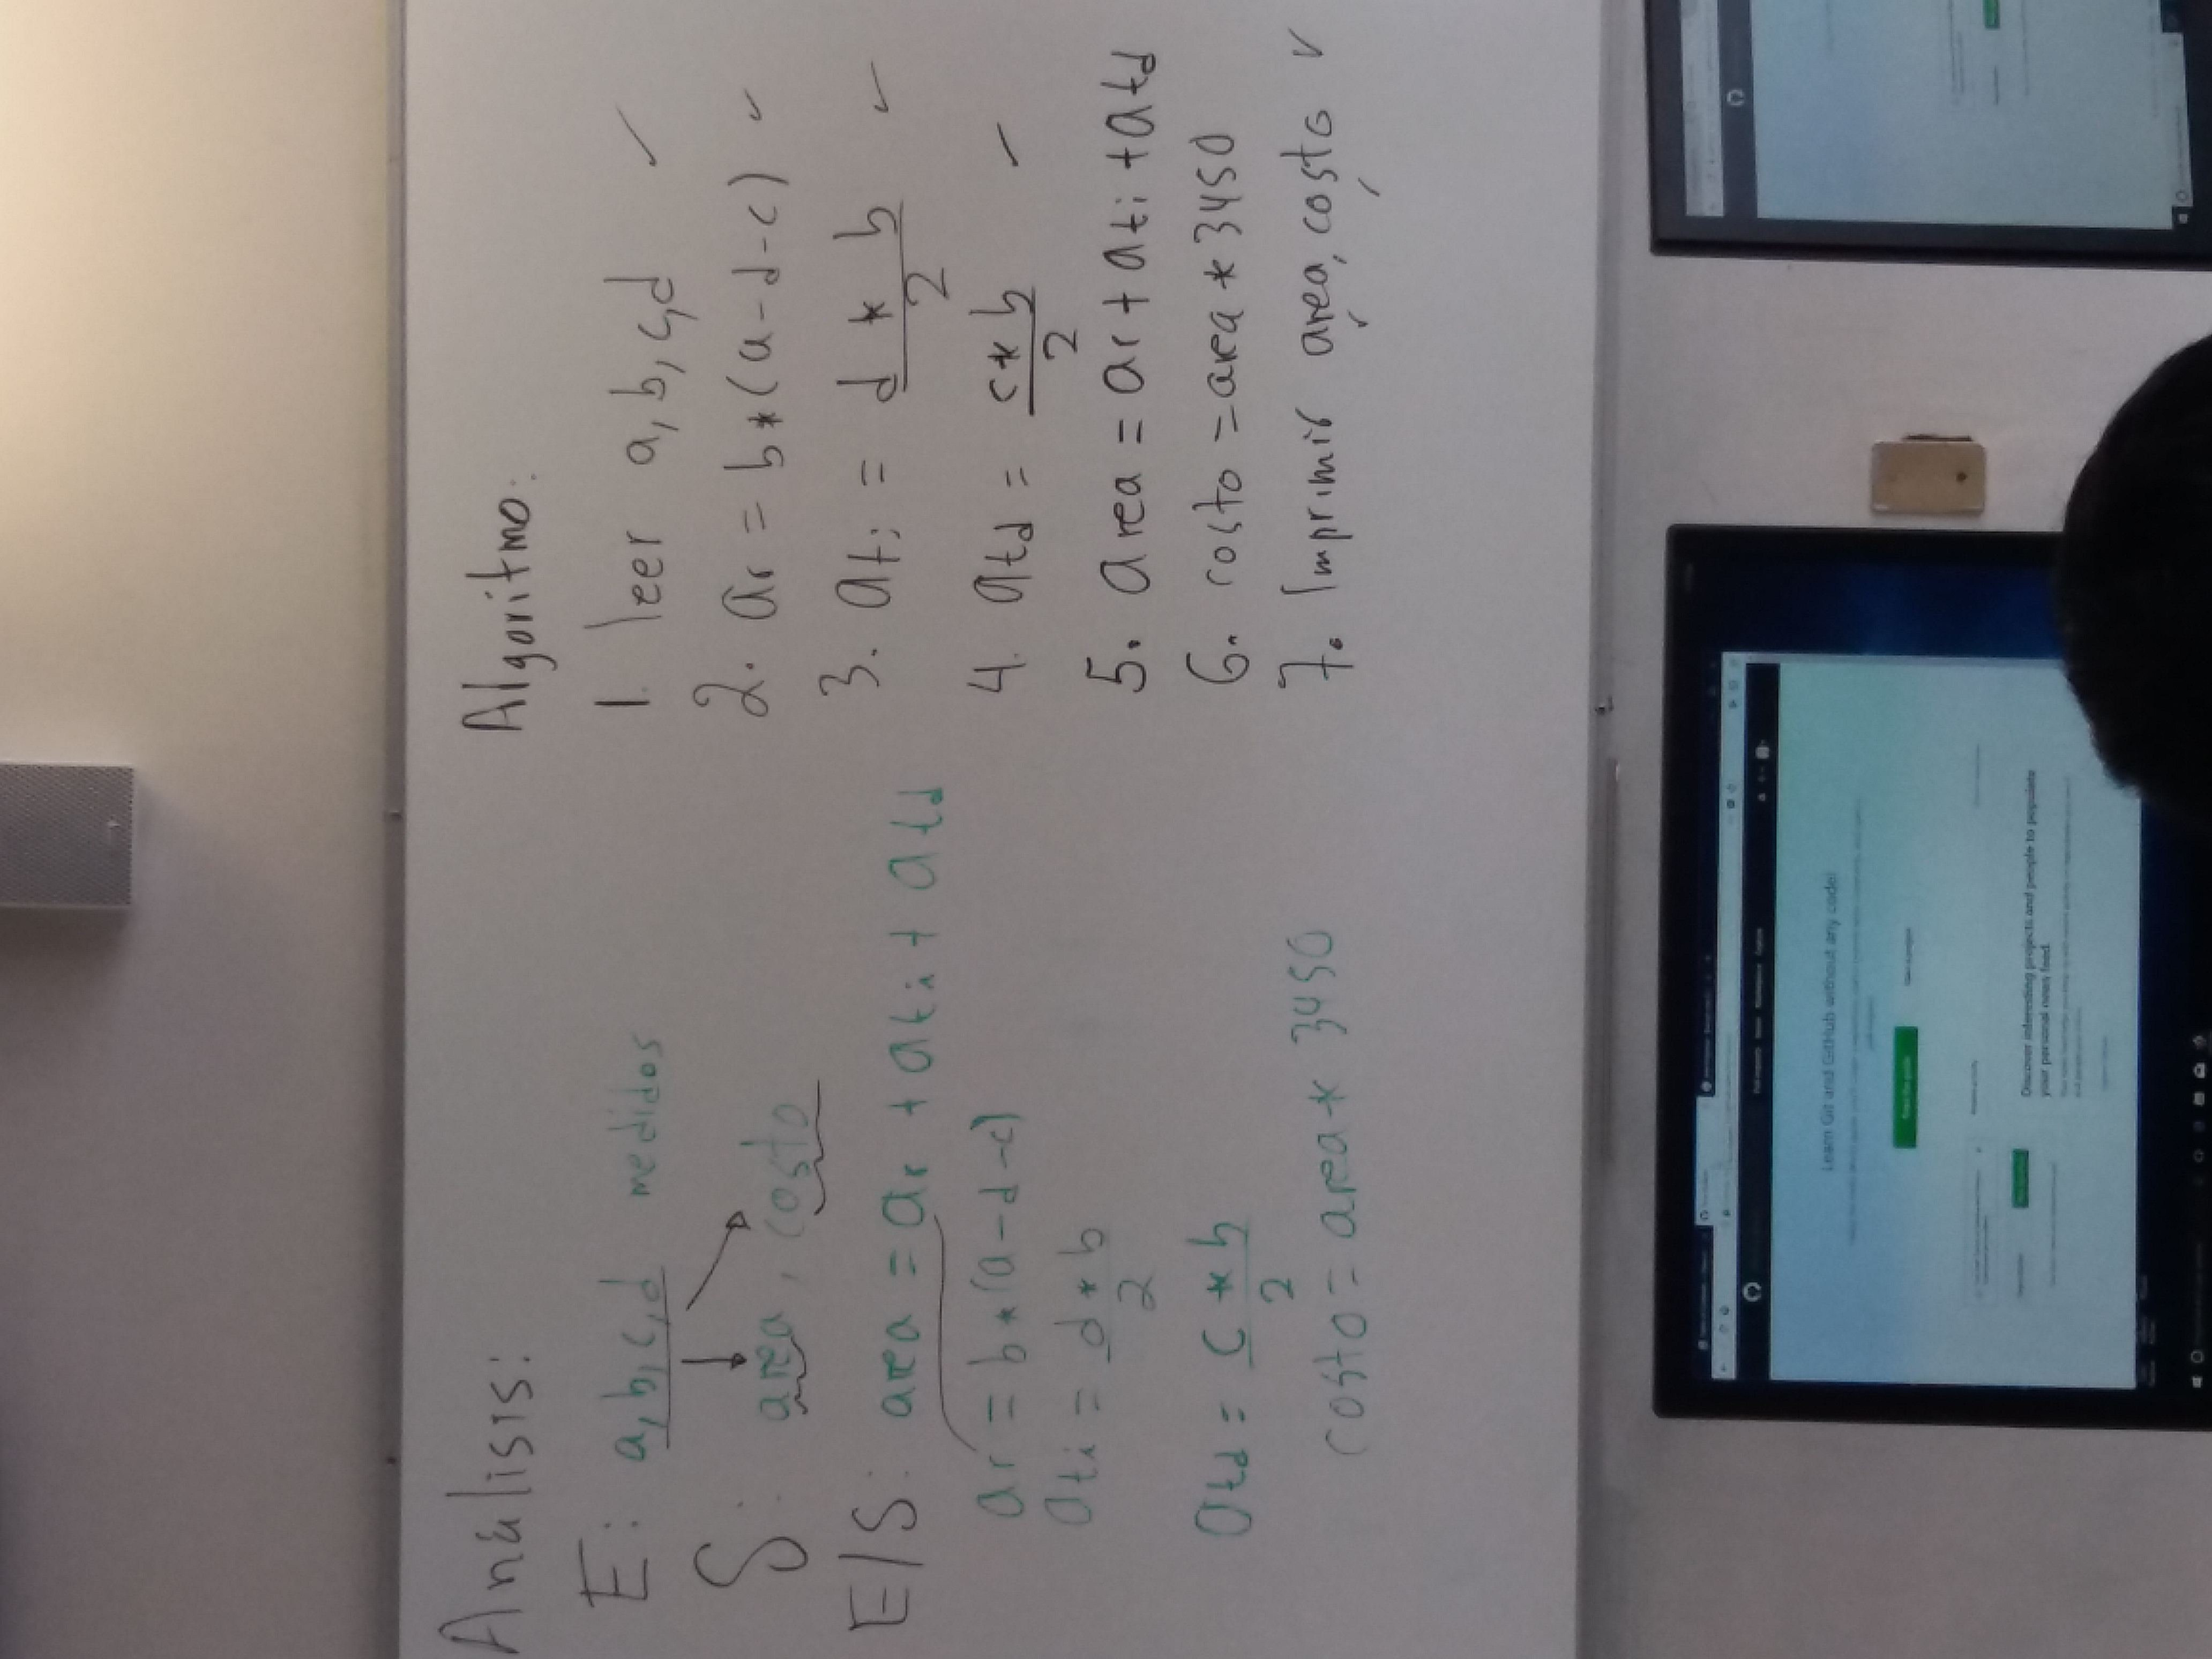 Análisis:
E: a, b, c, d medidos
S: area, costo
E/S: area = ar + ati + atd
ar = b * (a - d - c)
ati = d * b
2
atd = c * b
2
costo = area * 3450
Algoritmo:
1. leer a, b, c, d ✓
2. ar = b * (a - d - c) ✓
3. ati = d * b ✓
2
4. atd = c * b ✓
2
5. area = ar + ati + atd
6. costo = area * 3450
7. Imprimir area, costo ✓
Learn Git and GitHub without any code!
Discover interesting projects and people to populate
your personal news feed.